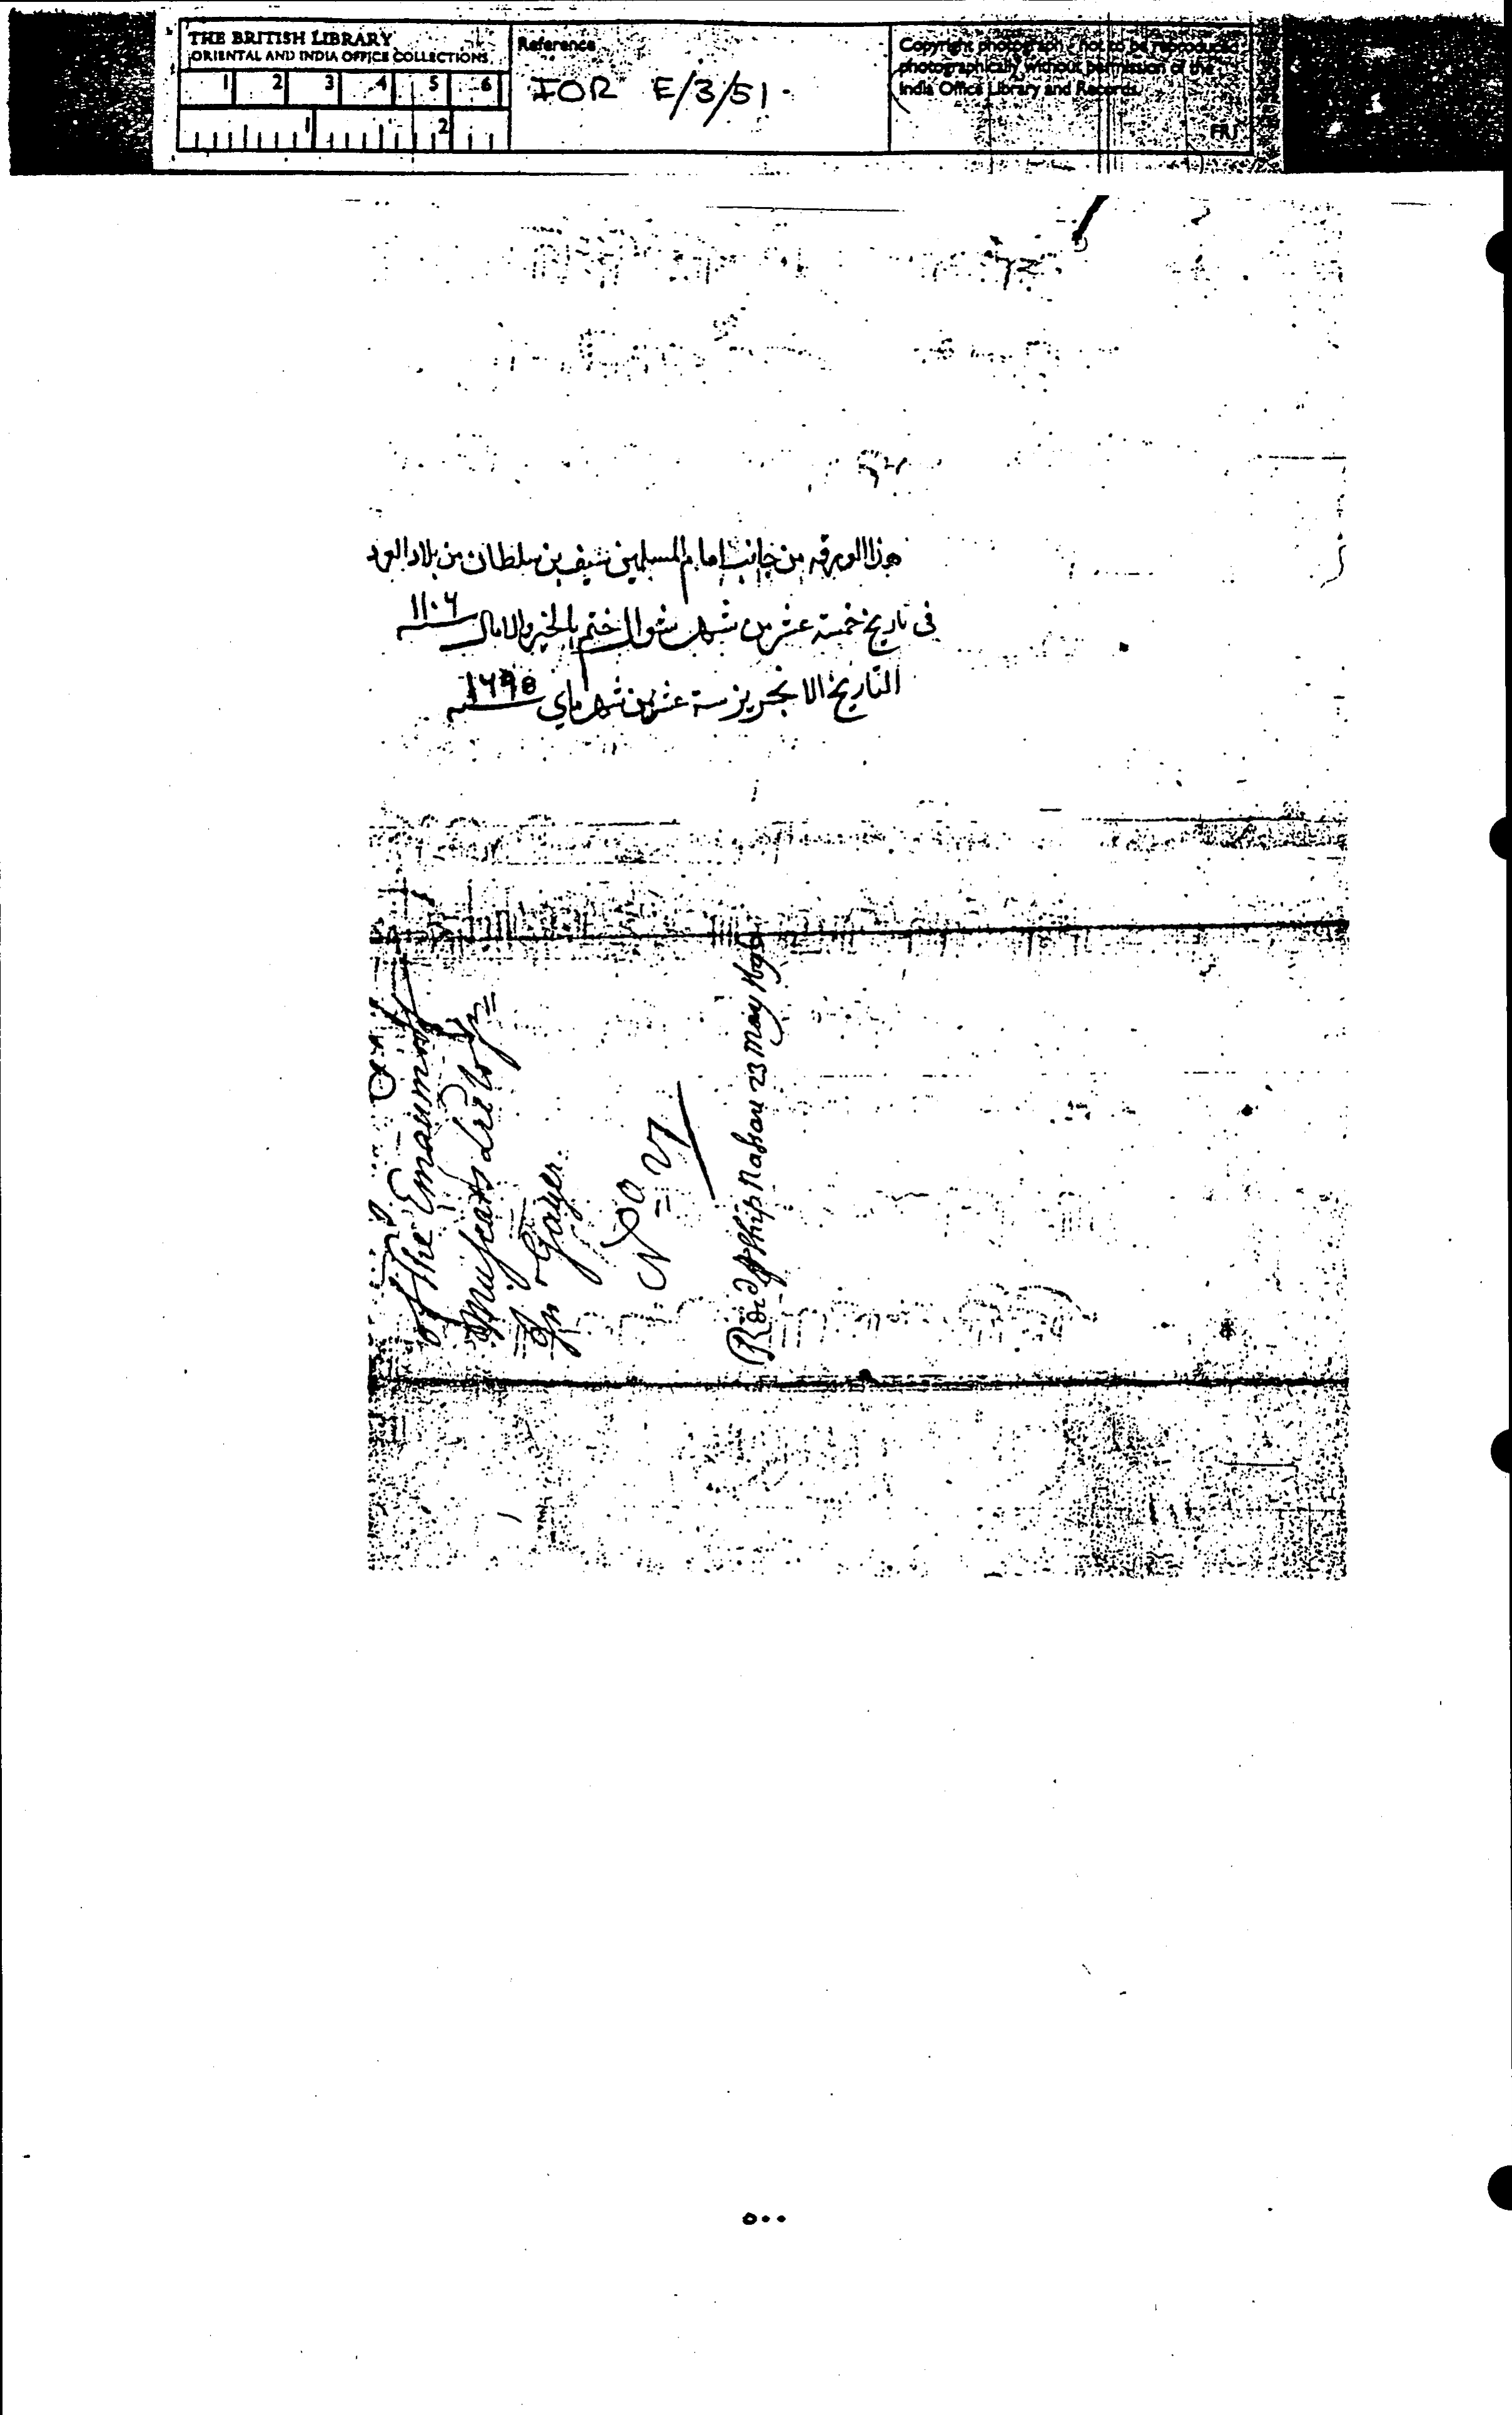 THE BRITISH LIBRARY
ORIENTAL AND INDIA OFFICE COLLECTIONS
1 2 3 4 5 6
1 2
Reference
IOR E/3/51.
Copyright photograph - not to be reproduced
photographically without permission of the
India Office Library and Records
هذا الورقه من جانب امام المسلمين سيف بن سلطان من بلاد العرب
فى تاريخ خمسة عشر من شهر شوال ختم بالخير والامال سنه ١١٠٦
التاريخ الانجريز ستة عشر من شهر ماي سنه
of the Emaum of
Muscats Lre to Sr
Jn Gayer.
No
Recd Ship Nassau 23 May
٥٠٠